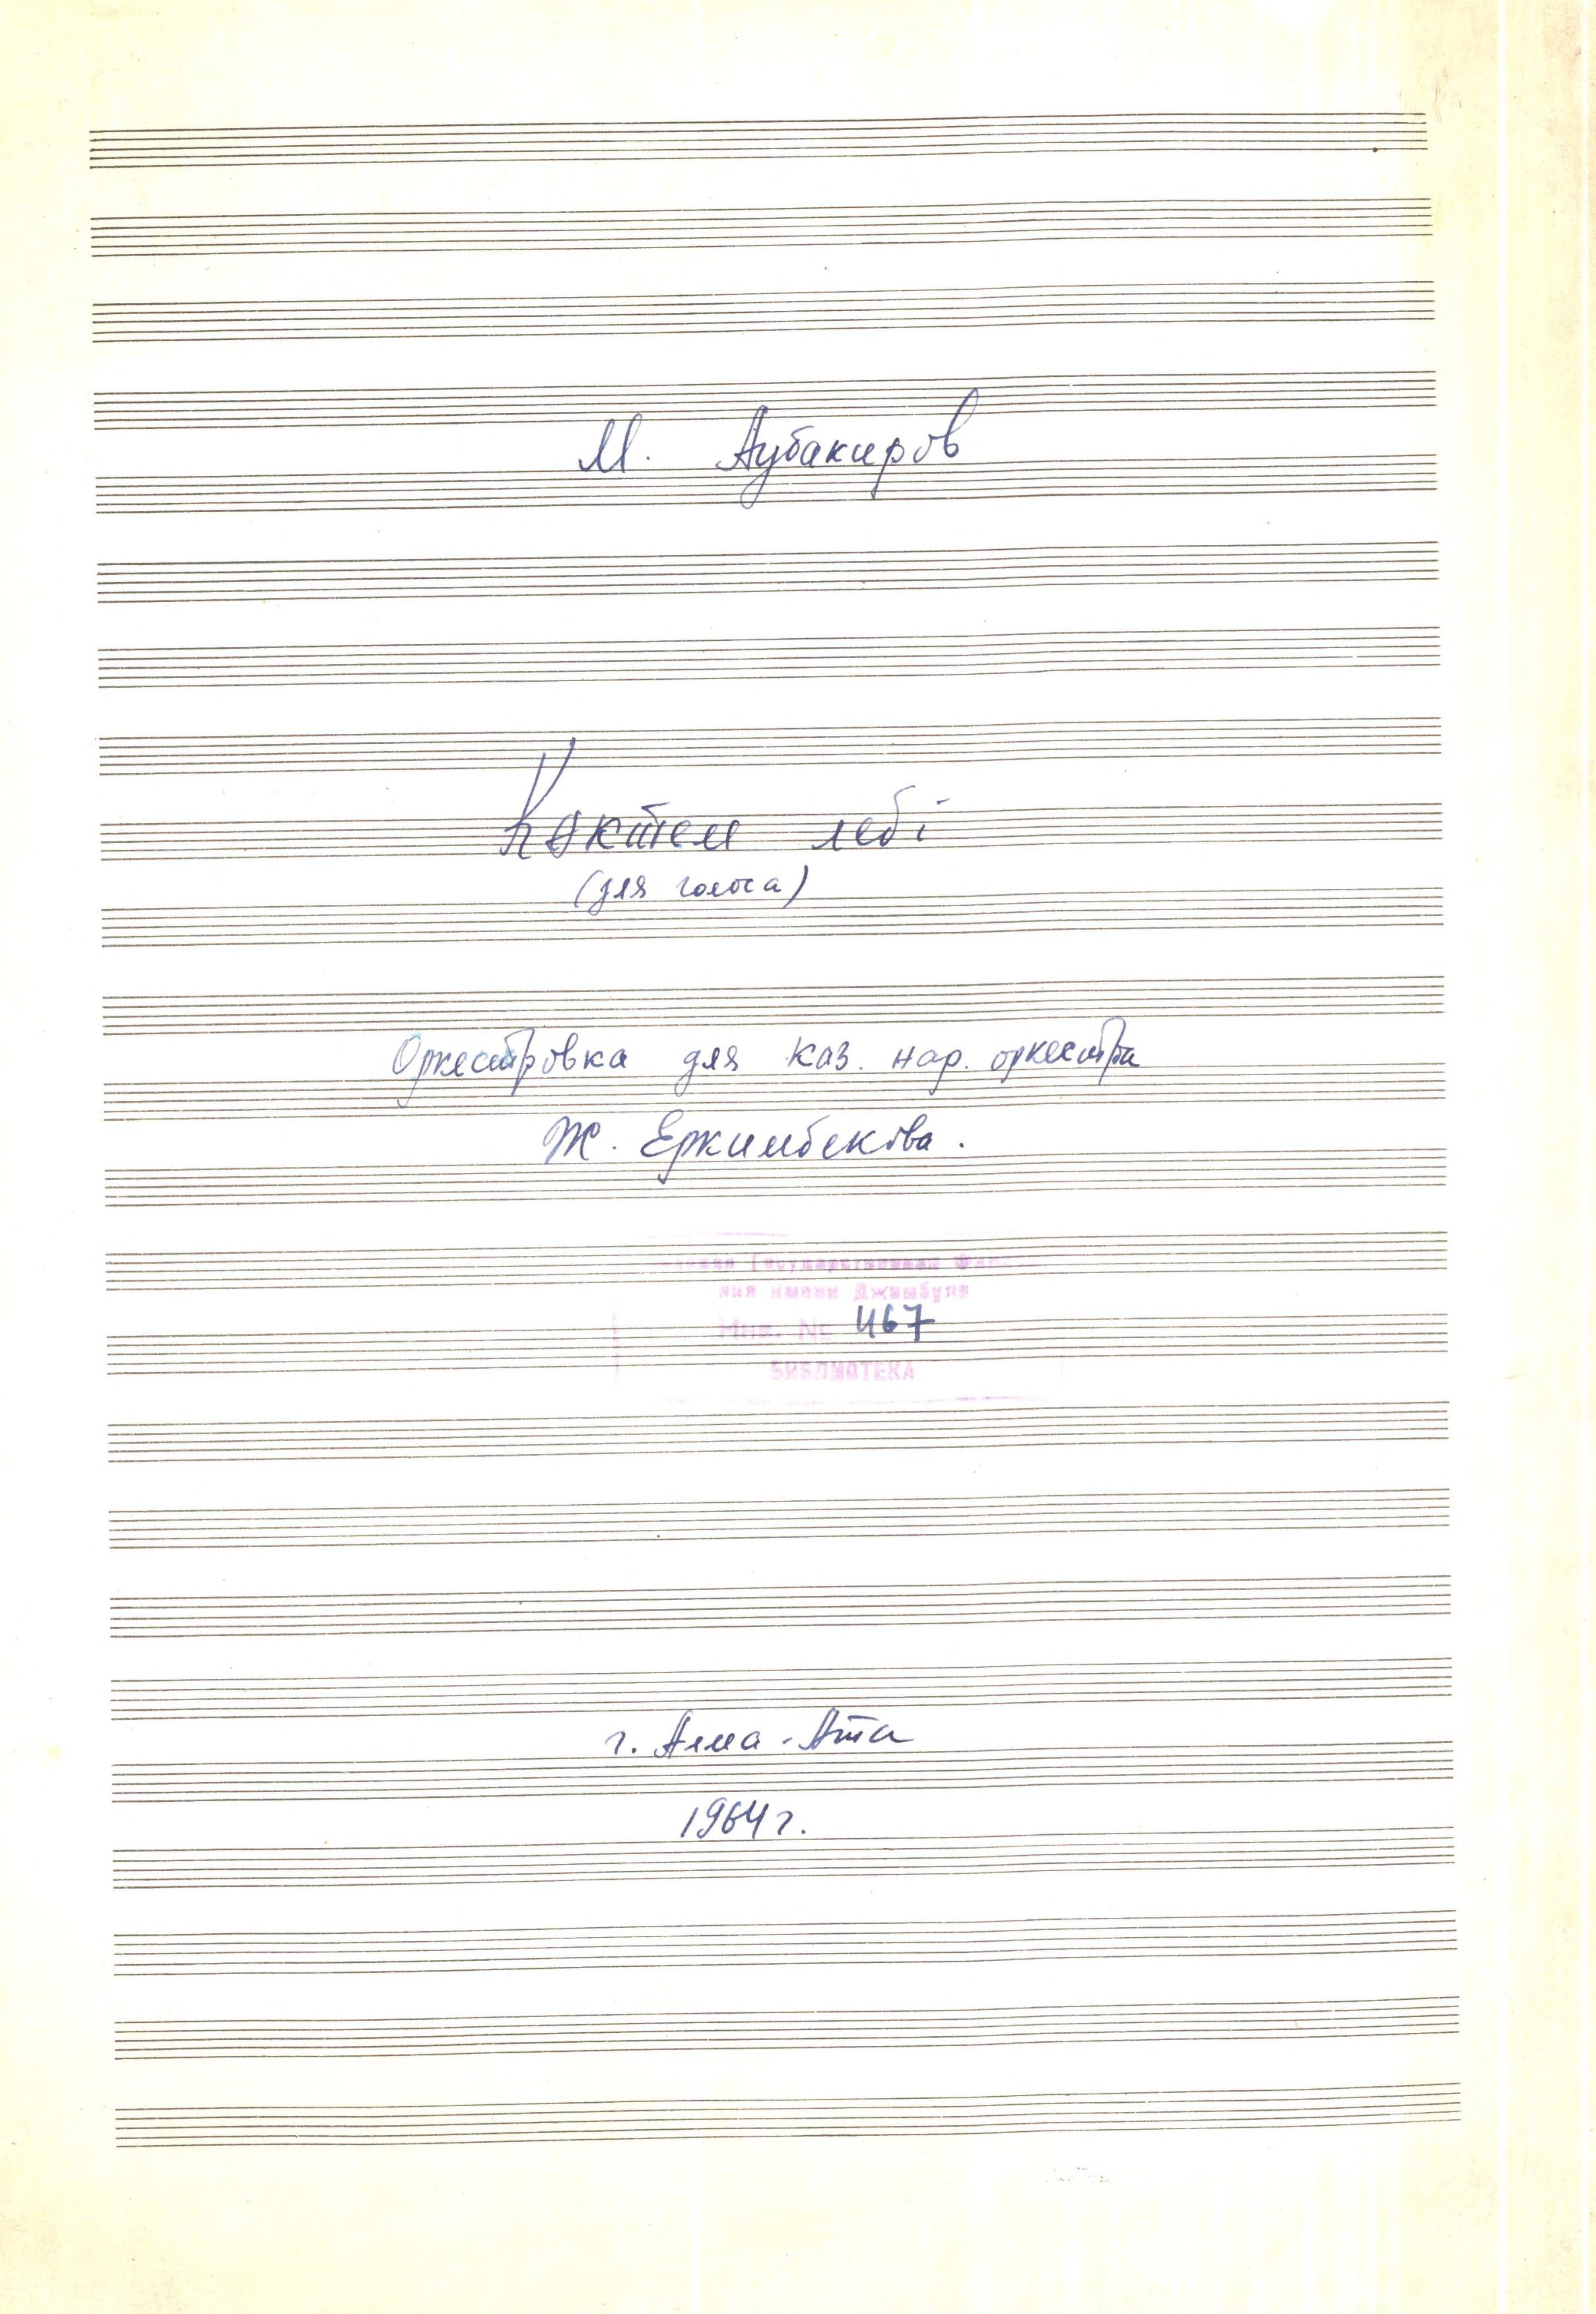 М. Аубакиров
Көктем лебі
(для голоса)
Оркестровка для каз. нар. оркестра
Ж. Еркимбекова.
Государственная
имени Джамбула
Инв. № 467
БИБЛИОТЕКА
г. Алма-Ата
1964 г.